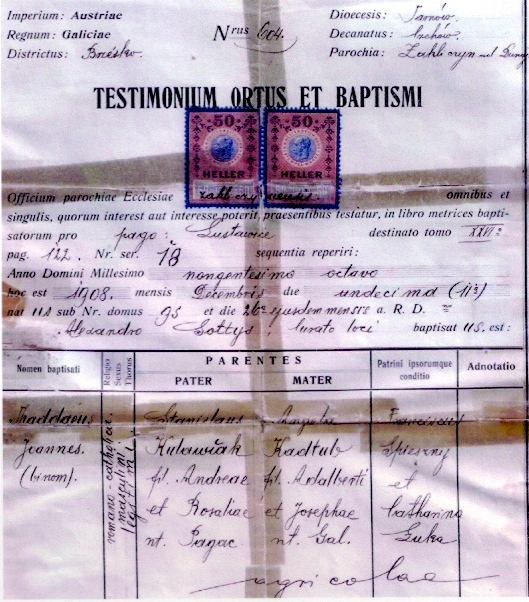 Imperium: Austriae
Regnum: Galiciae
Districtus: Brzésko.
Nrus 604.
Dioecesis: Tarnów.
Decanatus:
Parochia:
TESTIMONIUM ORTUS ET BAPTISMI
50 50
HELLER HELLER
Officium parochiae Ecclesiae omnibus et
singulis, quorum interest aut interesse poterit, praesentibus testatur, in libro metrices bapti-
satorum pro pago: destinato tomo XXVI
pag. 122. Nr. ser. 18 sequentia reperiri:
Anno Domini Millesimo nongentesimo octavo
hoc est 1908. mensis Decembris die undecima (11a)
nat us sub Nr. domus 95 et die 26a ejusdem mensis a. R. D.
Alexandro Sołtys, curato loci baptisat us. est:
Nomen baptisati
Religio
Sexus
Thorus
PARENTES
PATER
MATER
Patrini ipsorumque
conditio
Adnotatio
Thaddaeus
Joannes.
(binom).
romano-cathol.
masculini
legitimi
Stanislaus
Kuławiak
fil. Andreae
et Rosaliae
nt. Pagac
Kadłub
fil. Adalberti
et Josephae
nt. Gal.
Franciscus
Spieszny
et
Catharina
Zuka
agricolae